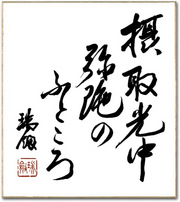 摂取光中
弥陀の
ふところ